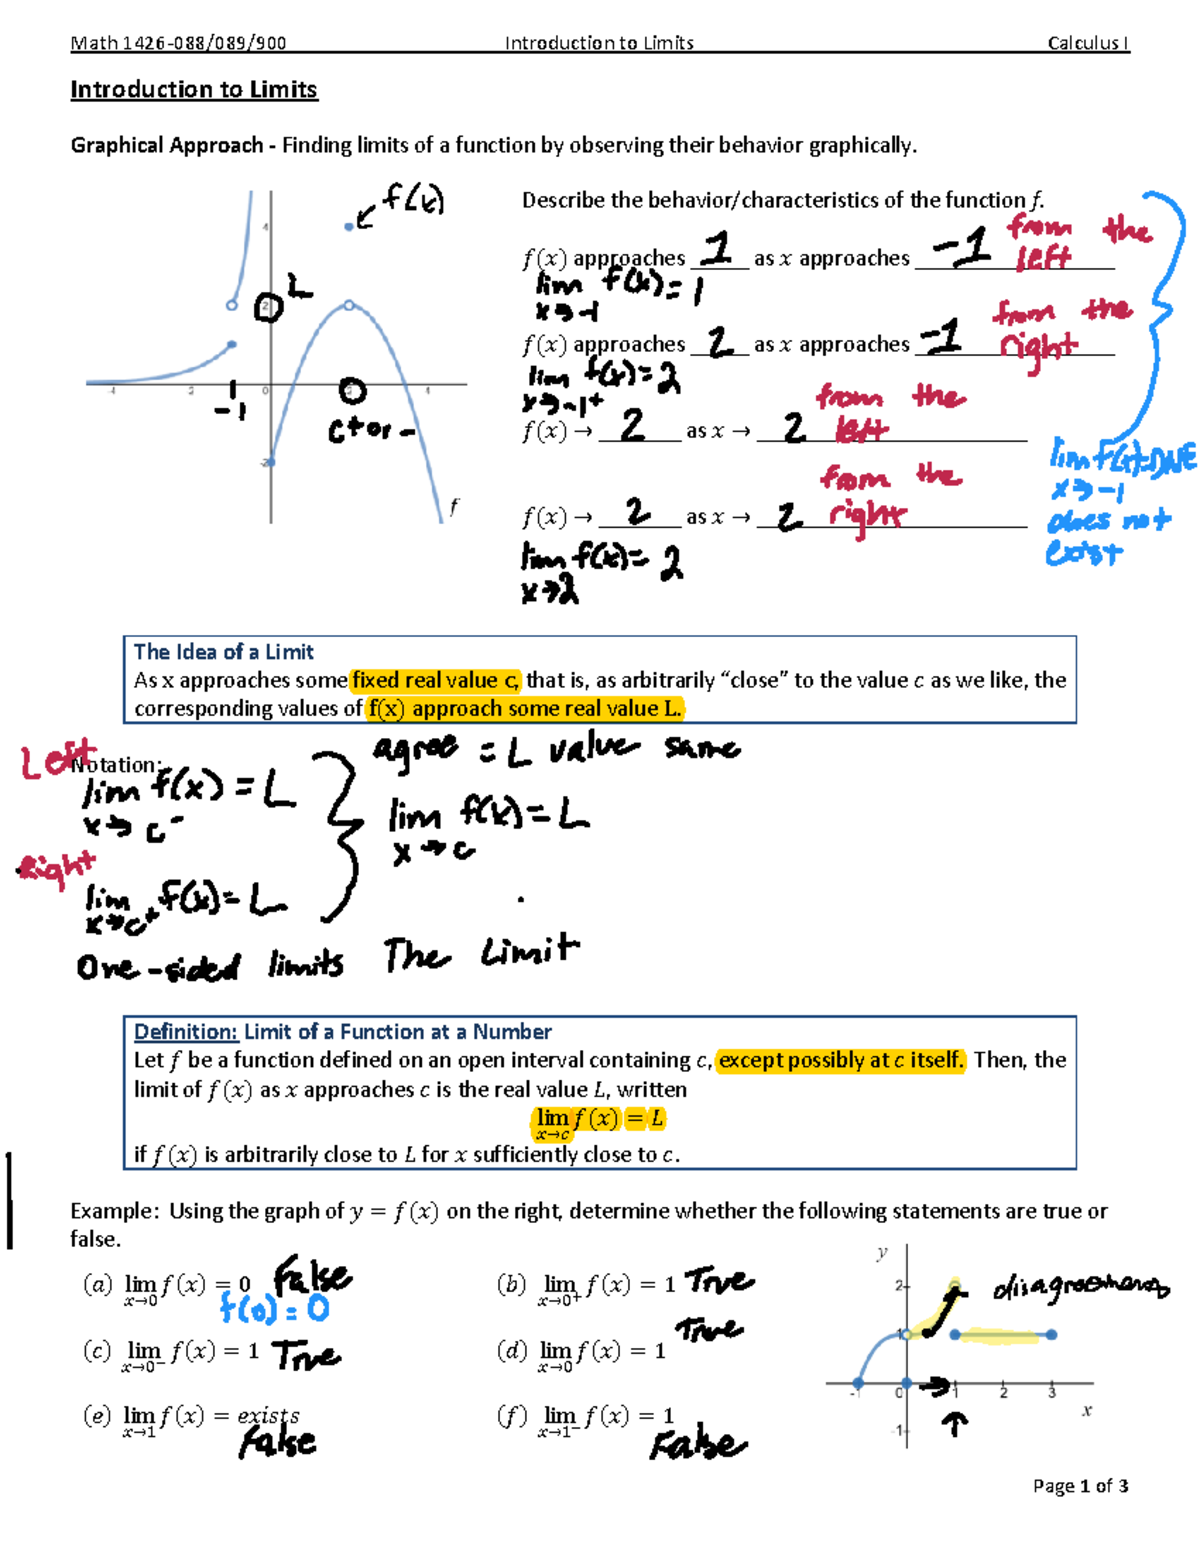 Math 1426-088/089/900 Introduction to Limits Calculus I
Introduction to Limits
Graphical Approach - Finding limits of a function by observing their behavior graphically.
f(x)
4
L
2
-4 0 4
-1
c + or -
-2
f
Describe the behavior/characteristics of the function f.
f(x) approaches 1 as x approaches -1 from the left
lim f(x) = 1
x→-1
f(x) approaches 2 as x approaches -1 from the right
lim f(x) = 2
x→-1+
f(x) → 2 as x → 2 from the left
f(x) → 2 as x → 2 from the right
lim f(x) = 2
x→2
lim f(x)=DNE
x→-1
does not
exist
The Idea of a Limit
As x approaches some fixed real value c, that is, as arbitrarily “close” to the value c as we like, the
corresponding values of f(x) approach some real value L.
Left
Notation:
lim f(x) = L
x→c-
Right
lim f(x) = L
x→c+
One-sided limits
agree = L value same
lim f(x) = L
x→c
The Limit
Definition: Limit of a Function at a Number
Let f be a function defined on an open interval containing c, except possibly at c itself. Then, the
limit of f(x) as x approaches c is the real value L, written
lim f(x) = L
x→c
if f(x) is arbitrarily close to L for x sufficiently close to c.
Example: Using the graph of y = f(x) on the right, determine whether the following statements are true or
false.
(a) lim f(x) = 0 False
x→0
f(0) = 0
(b) lim f(x) = 1 True
x→0+
(c) lim f(x) = 1 True
x→0−
(d) lim f(x) = 1 True
x→0
(e) lim f(x) = exists False
x→1
(f) lim f(x) = 1 False
x→1−
y
2
1
-1 0 1 2 3
x
-1
Page 1 of 3